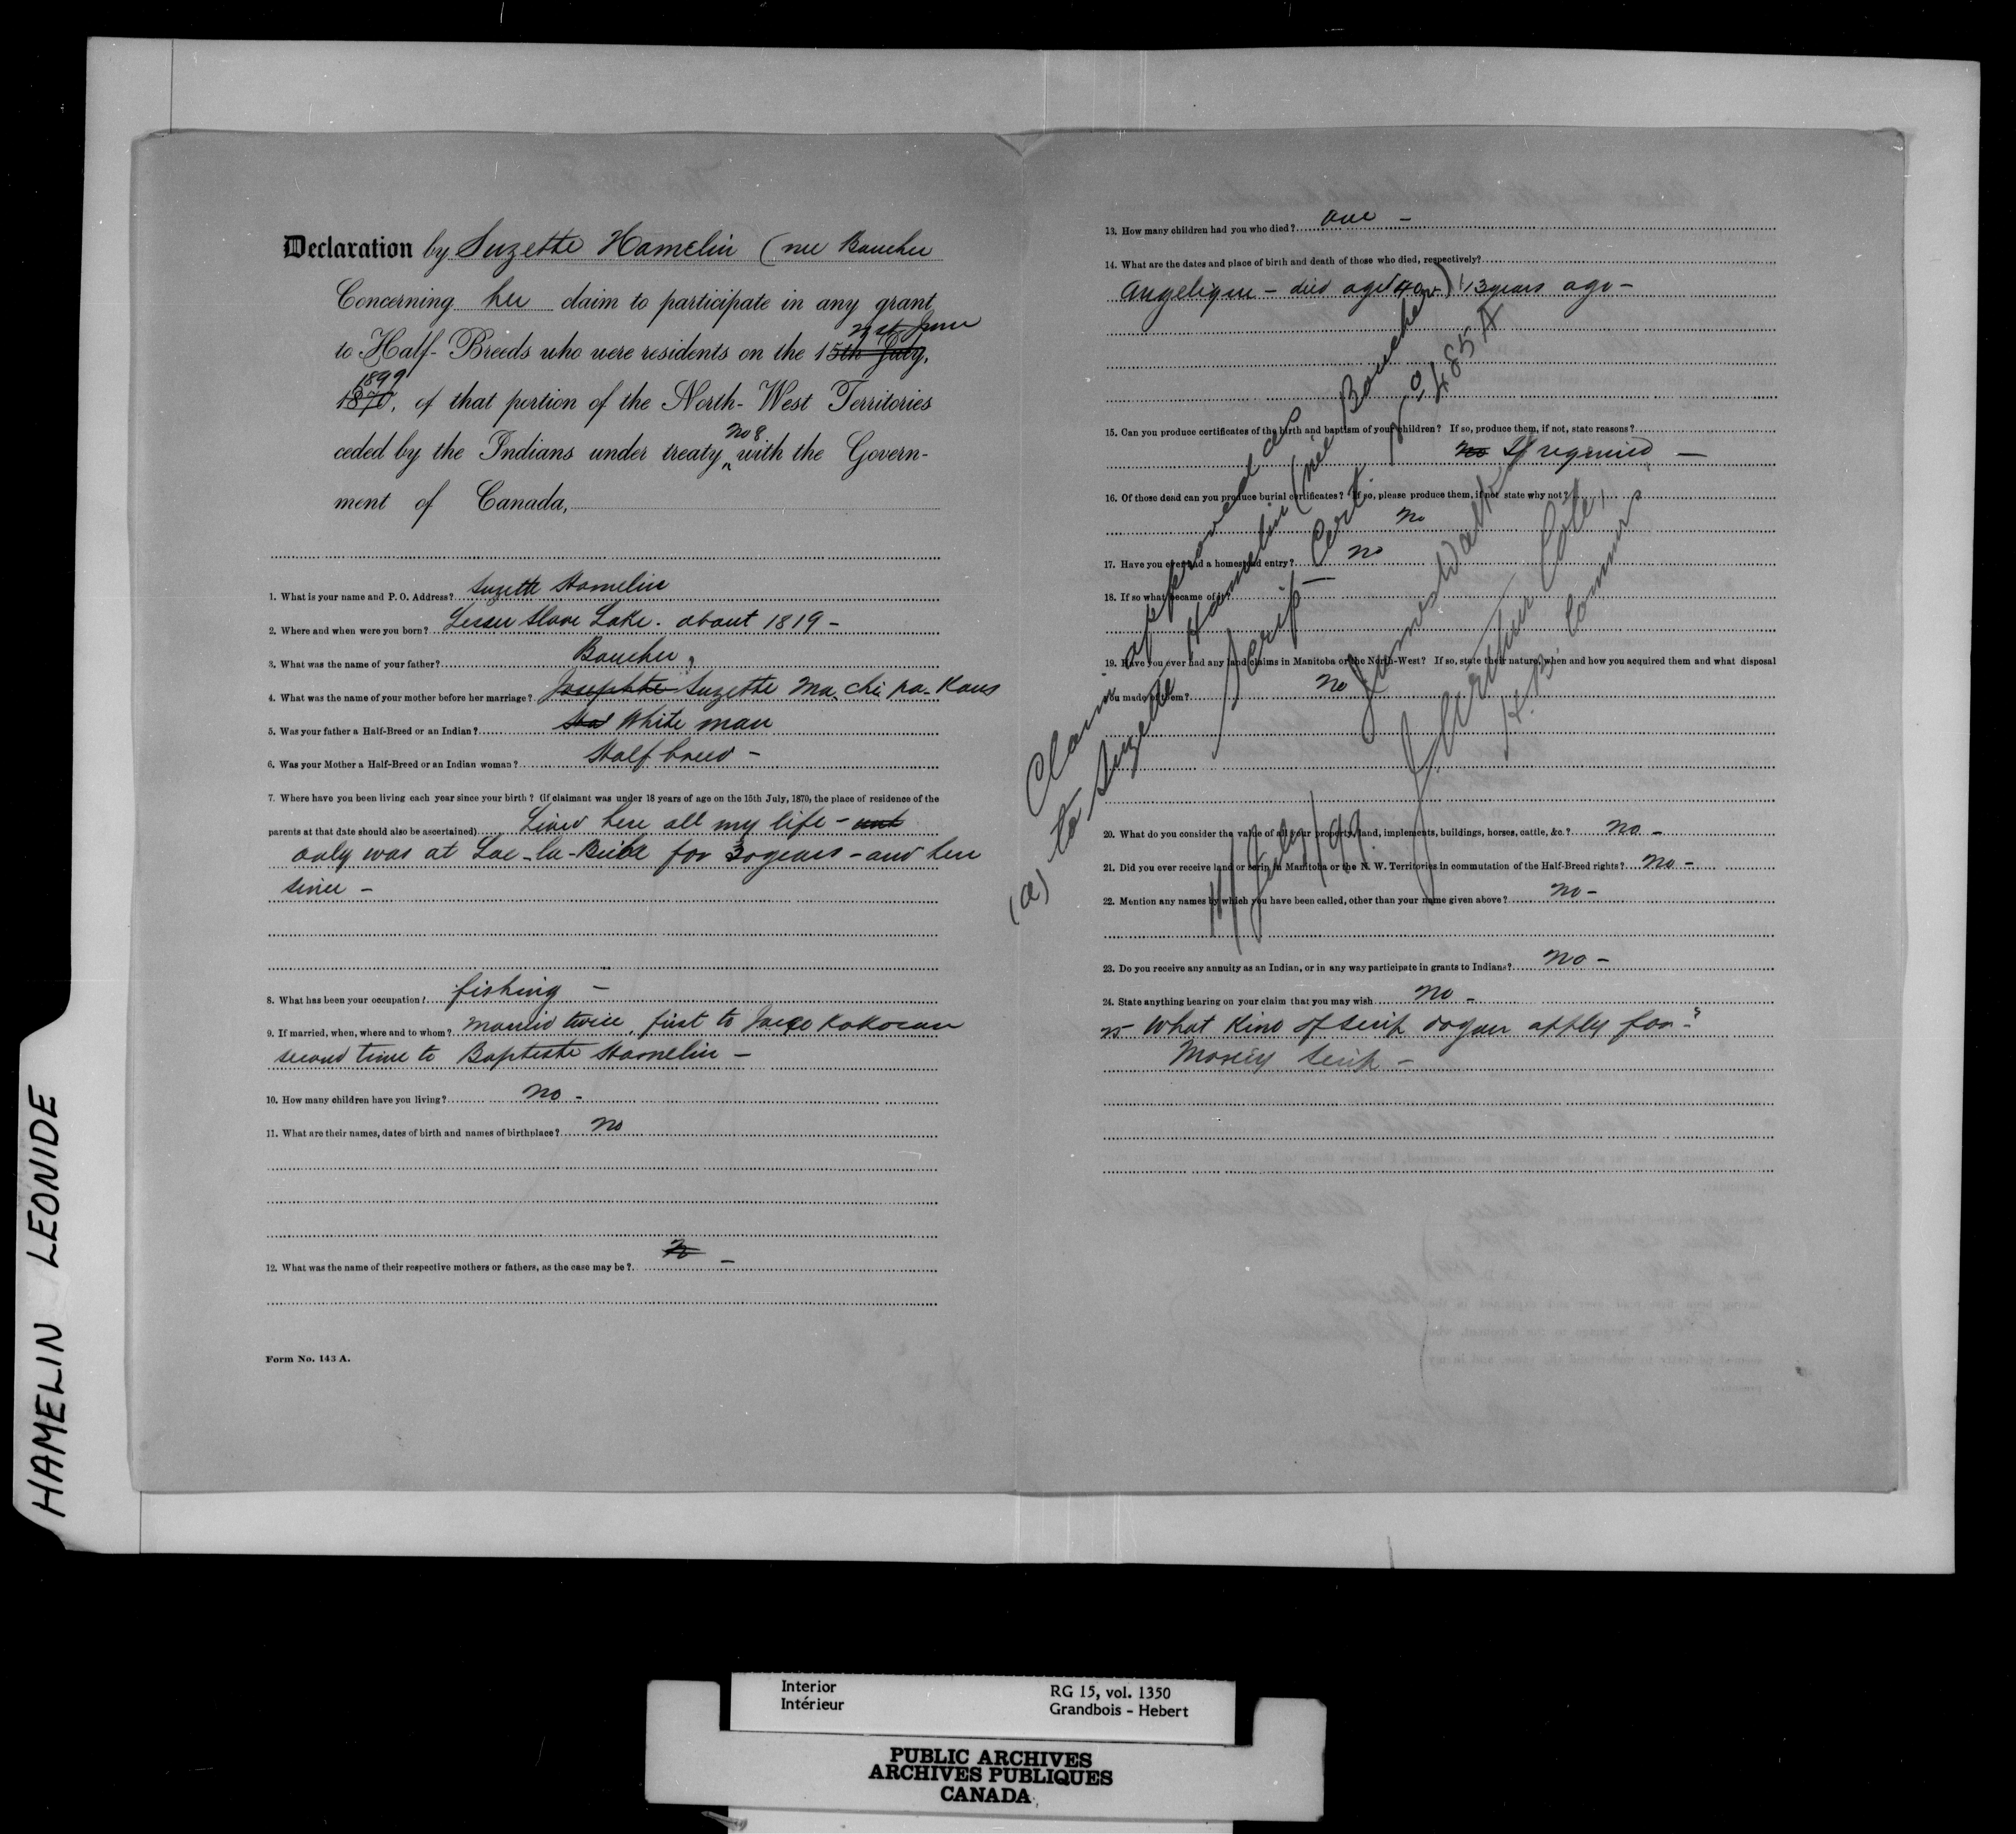 Declaration by Suzette Hamelin (nee Boucher
Concerning her claim to participate in any grant
to Half-Breeds who were residents on the 15th July, 21st June
1870, 1899 of that portion of the North-West Territories
ceded by the Indians under treaty No 8 with the Govern-
ment of Canada,
1. What is your name and P. O. Address? Suzette Hamelin
2. Where and when were you born? Lesser Slave Lake. about 1819 -
3. What was the name of your father? Boucher,
4. What was the name of your mother before her marriage? Josephte Suzette Ma. chi. pa. Kaus
5. Was your father a Half-Breed or an Indian? White man
6. Was your Mother a Half-Breed or an Indian woman? Half breed -
7. Where have you been living each year since your birth? (If claimant was under 18 years of age on the 15th July, 1870, the place of residence of the
parents at that date should also be ascertained) Lived here all my life - and
only was at Lac-la-Biche for 30 years - and here
since -
8. What has been your occupation? fishing -
9. If married, when, where and to whom? Married twice, first to Kokocan
second time to Baptiste Hamelin -
10. How many children have you living? No -
11. What are their names, dates of birth and names of birthplace? No
12. What was the name of their respective mothers or fathers, as the case may be? No -
Form No. 143 A.
13. How many children had you who died? One -
14. What are the dates and place of birth and death of those who died, respectively?
Angelique - died aged (40 ) 13 years ago -
15. Can you produce certificates of the birth and baptism of your children? If so, produce them, if not, state reasons?
No If required -
16. Of those dead can you produce burial certificates? If so, please produce them, if not state why not?
No
17. Have you ever had a homestead entry? No
18. If so what became of it?
19. Have you ever had any land claims in Manitoba or the North-West? If so, state their nature, when and how you acquired them and what disposal
you made of them? No
20. What do you consider the value of all your property, land, implements, buildings, horses, cattle, &c.? No -
21. Did you ever receive land or scrip in Manitoba or the N. W. Territories in commutation of the Half-Breed rights? No -
22. Mention any names by which you have been called, other than your name given above? No -
23. Do you receive any annuity as an Indian, or in any way participate in grants to Indians? No -
24. State anything bearing on your claim that you may wish No -
25 What Kind of scrip do you apply for - ?
Money Scrip -
Claim approved as
(a) to Suzette Hamelin (née Boucher)
Scrip - Cert. 485 A
James Walker
J. Arthur Coté,
H. B. Commrs
July/99.
HAMELIN LEONIDE
Interior
Intérieur
RG 15, vol. 1350
Grandbois - Hebert
PUBLIC ARCHIVES
ARCHIVES PUBLIQUES
CANADA